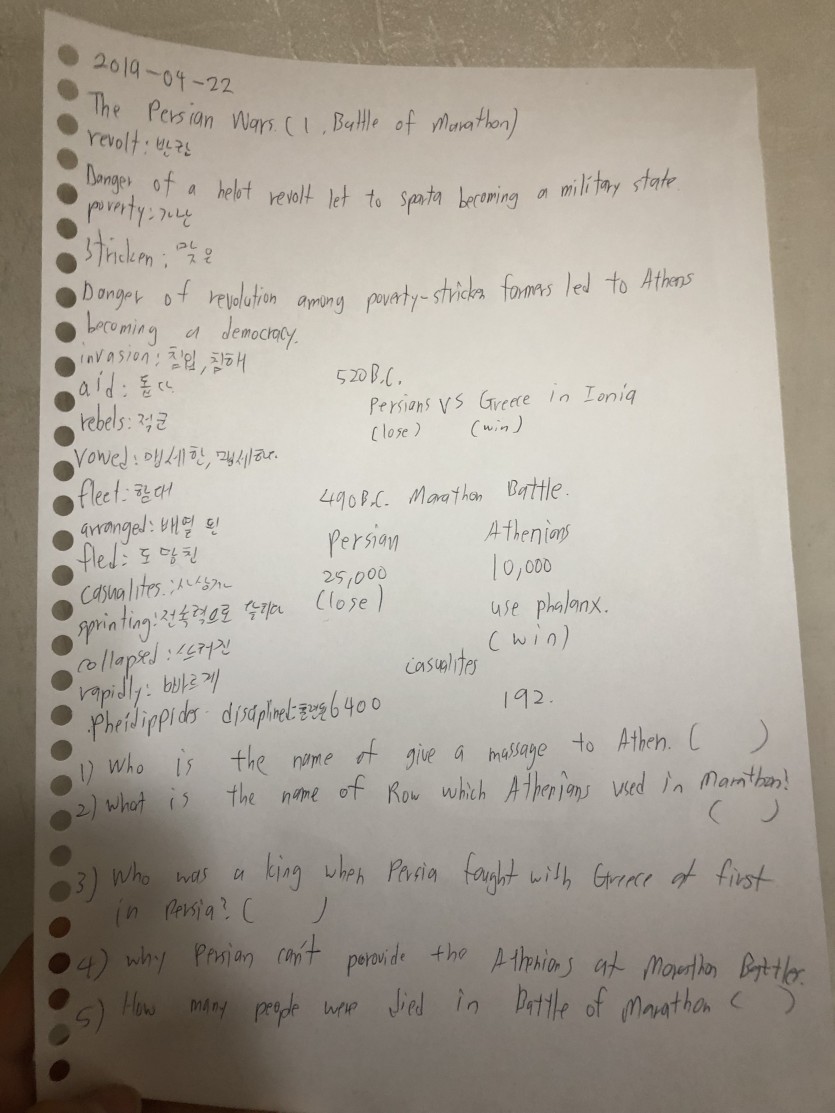 2019-04-22
The Persian Wars. (1. Battle of Marathon)
revolt: 반란
Danger of a helot revolt let to sparta becoming a military state.
poverty: 가난
stricken: 맞은
Danger of revolution among poverty-stricken farmers led to Athens
becoming a democracy.
invasion: 침입, 침해
aid: 돕다
520 B.C.
Persians VS Greece in Ionia
rebels: 적군
(lose) (win)
vowed: 맹세한, 맹세하다.
fleet: 함대
490 B.C. Marathon Battle.
arranged: 배열 된
Persian Athenians
fled: 도망친
25,000 10,000
casualites.: 사상자
(lose) use phalanx.
sprinting: 전속력으로 달리다
(win)
collapsed: 쓰러진
casualites
rapidly: 빠르게
Pheidippides. disciplined: 6400 192.
1) Who is the name of give a massage to Athen. ( )
2) What is the name of Row which Athenians used in Marathon?
( )
3) Who was a king when Persia fought with Greece at first
in Persia? ( )
4) why Persian can't porovide the Athenions at Marathon Battler.
5) How many people were died in Battle of Marathon ( )